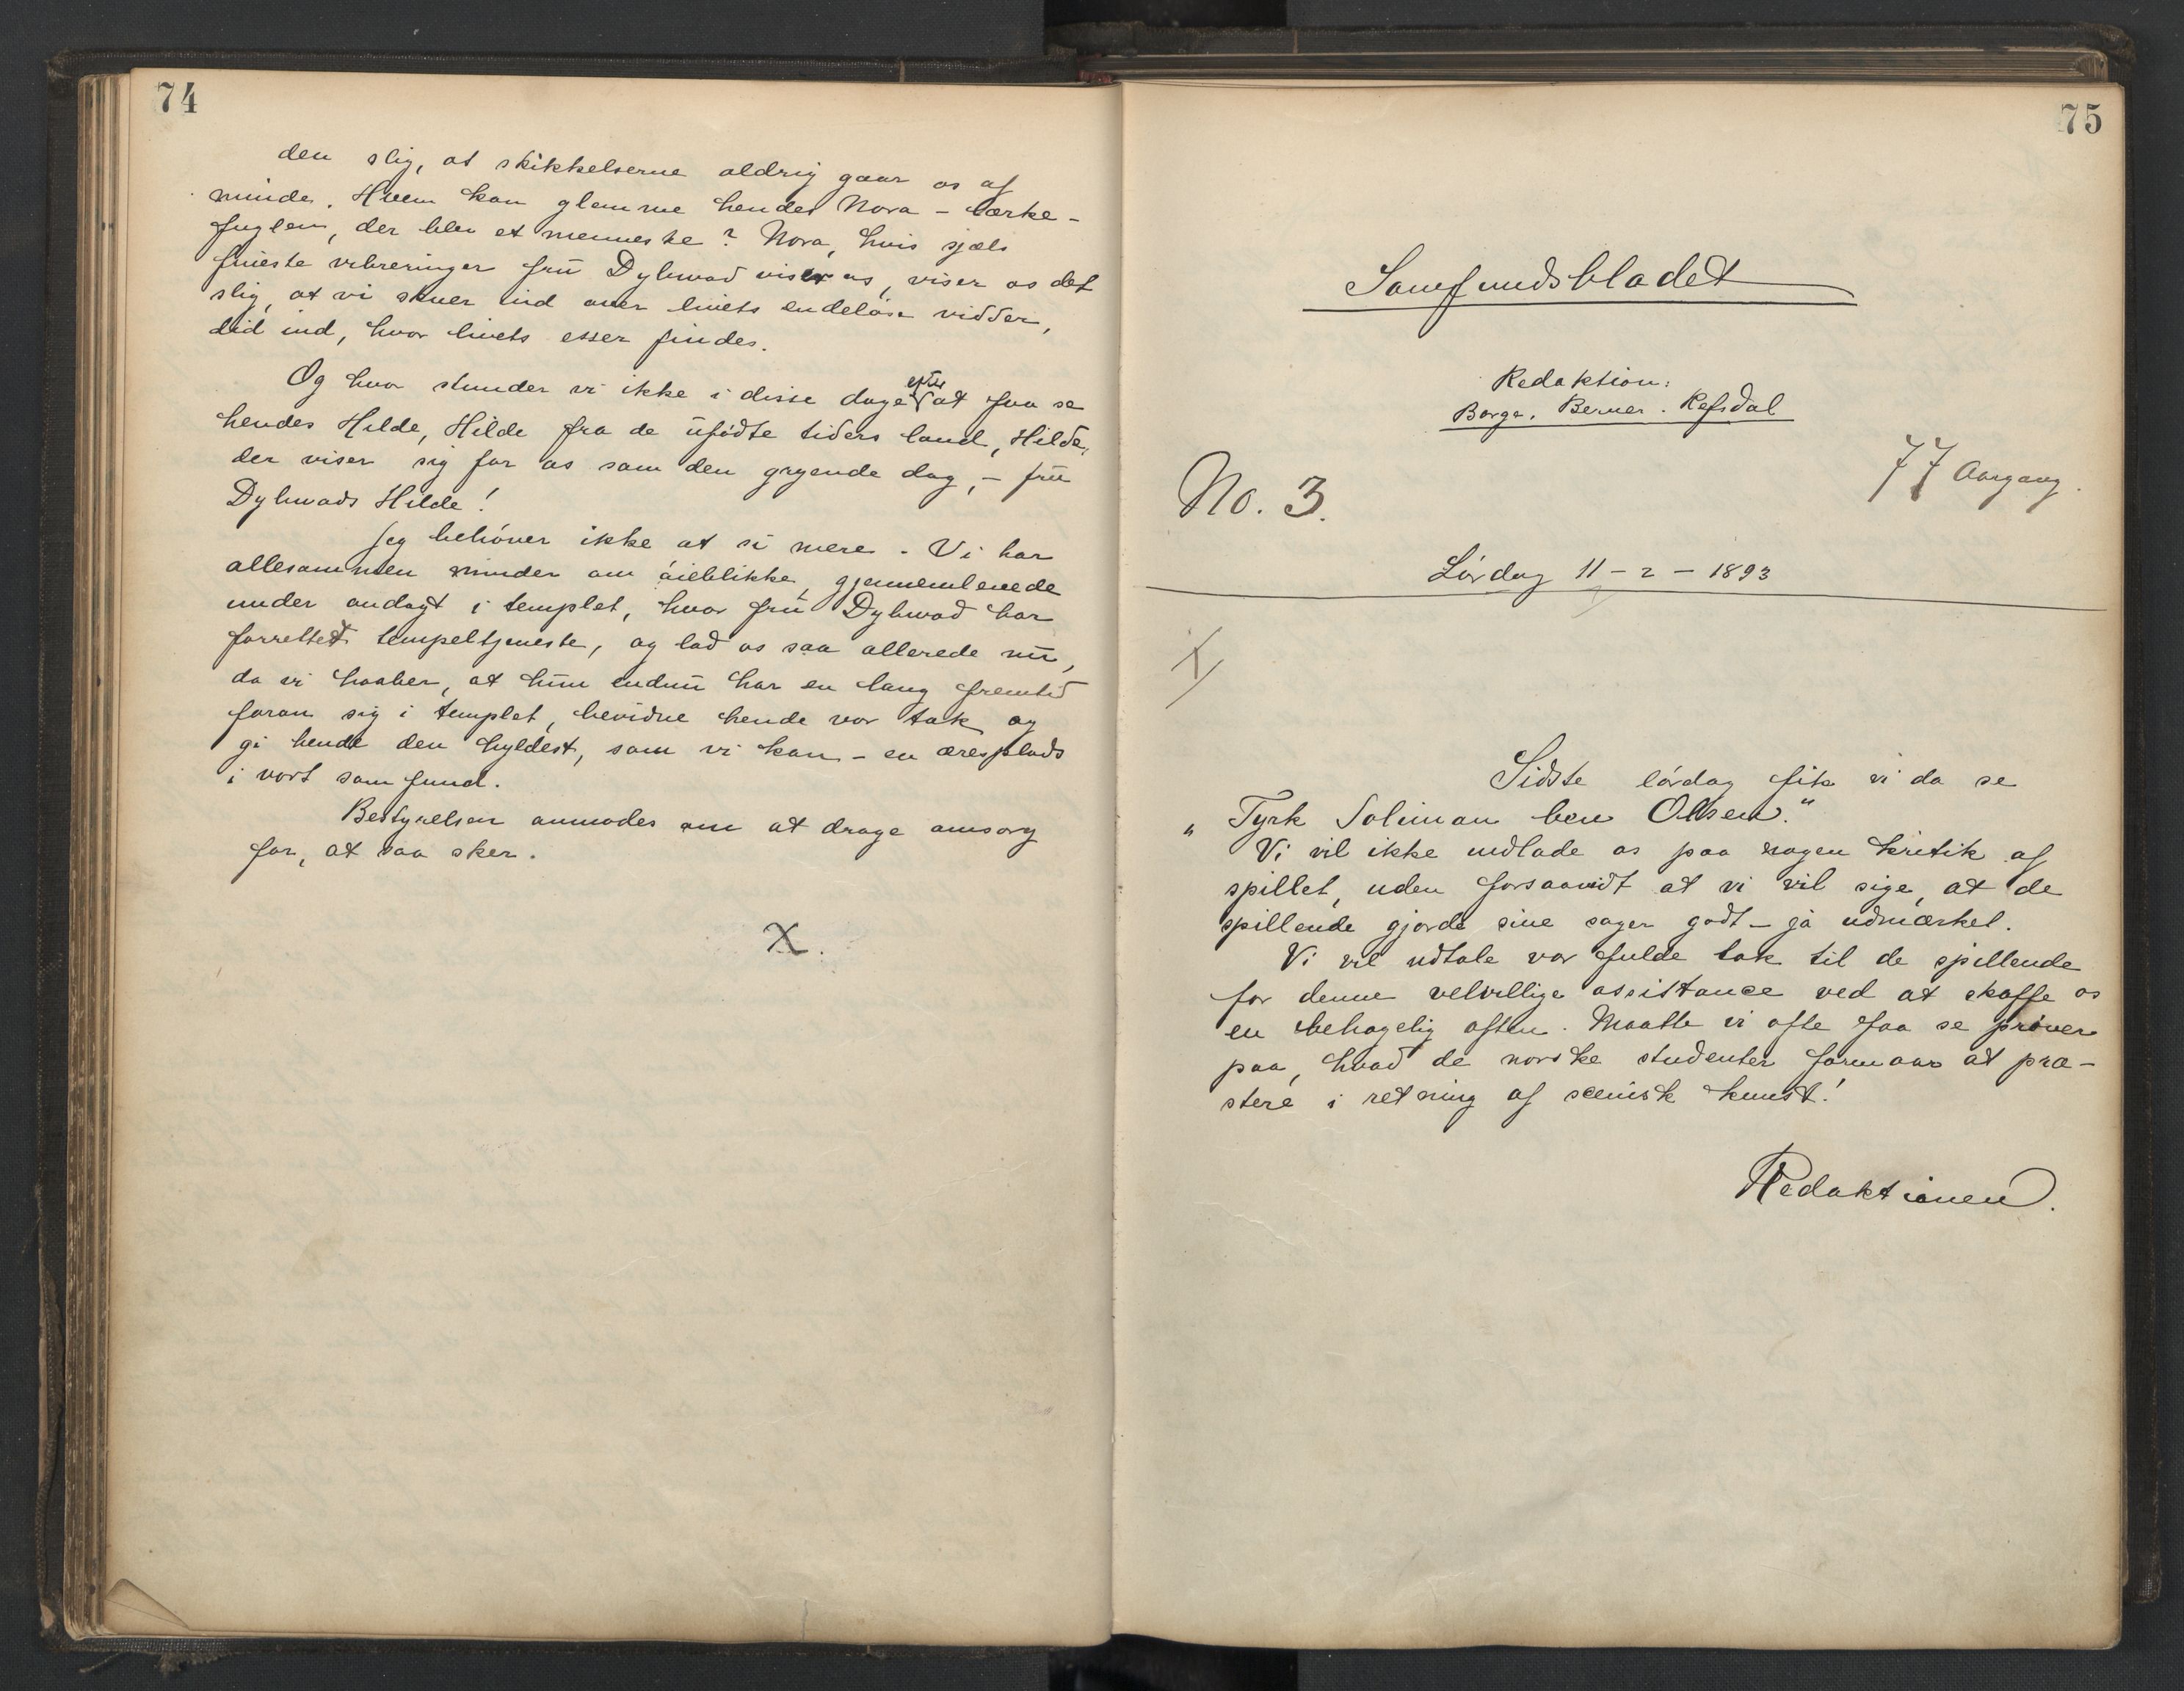 74
den slig, at skikkelserne aldrig gaar os af
minde. Hvem kan glemme hendes Nora – lærke-
fuglen, der blev et menneske? Nora, hvis sjæls
fineste vibreringer frü Dybwad viser os, viser os det
slig, at vi skuer ind over livets endeløse vidder,
did ind, hvor livets esser findes.
Og hvor stunder vi ikke i disse dage efter at faa se
hendes Hilde, Hilde fra de ufødte tiders land, Hilde,
der viser sig for os som den gryende dag, – frü
Dybwads Hilde!
Jeg behøver ikke at si mere. Vi har
allesammen minder om øieblikke, gjennemlevede
under andagt i templet, hvor frü Dybwad har
forrettet tempeltjeneste, og lad os saa allerede nü,
da vi haaber, at hün endnü har en lang fremtid
foran sig i templet, bevidne hende vor tak og
gi hende den hyldest, som vi kan – en æresplads
i vort samfund.
Bestyrelsen anmodes om at drage omsorg
for, at saa sker.
X.
75
Samfundsbladet
Redaktion:
Borge. Berner. Refsdal
77 Aargang.
No. 3.
Lørdag 11 – 2 – 1893
X
Sidste lørdag fik vi da se
„Tyrk Soliman ben Olsen.“
Vi vil ikke indlade os paa nogen kritik af
spillet, uden forsaavidt at vi vil sige, at de
spillende gjorde sine sager godt – ja udmærket.
Vi vil udtale vor fulde tak til de spillende
for denne velvillige assistance ved at skaffe os
en behagelig aften. Maatte vi ofte faa se prøver
paa, hvad de norske studenter formaar at præ-
stere i retning af scenisk kunst!
Redaktionen.